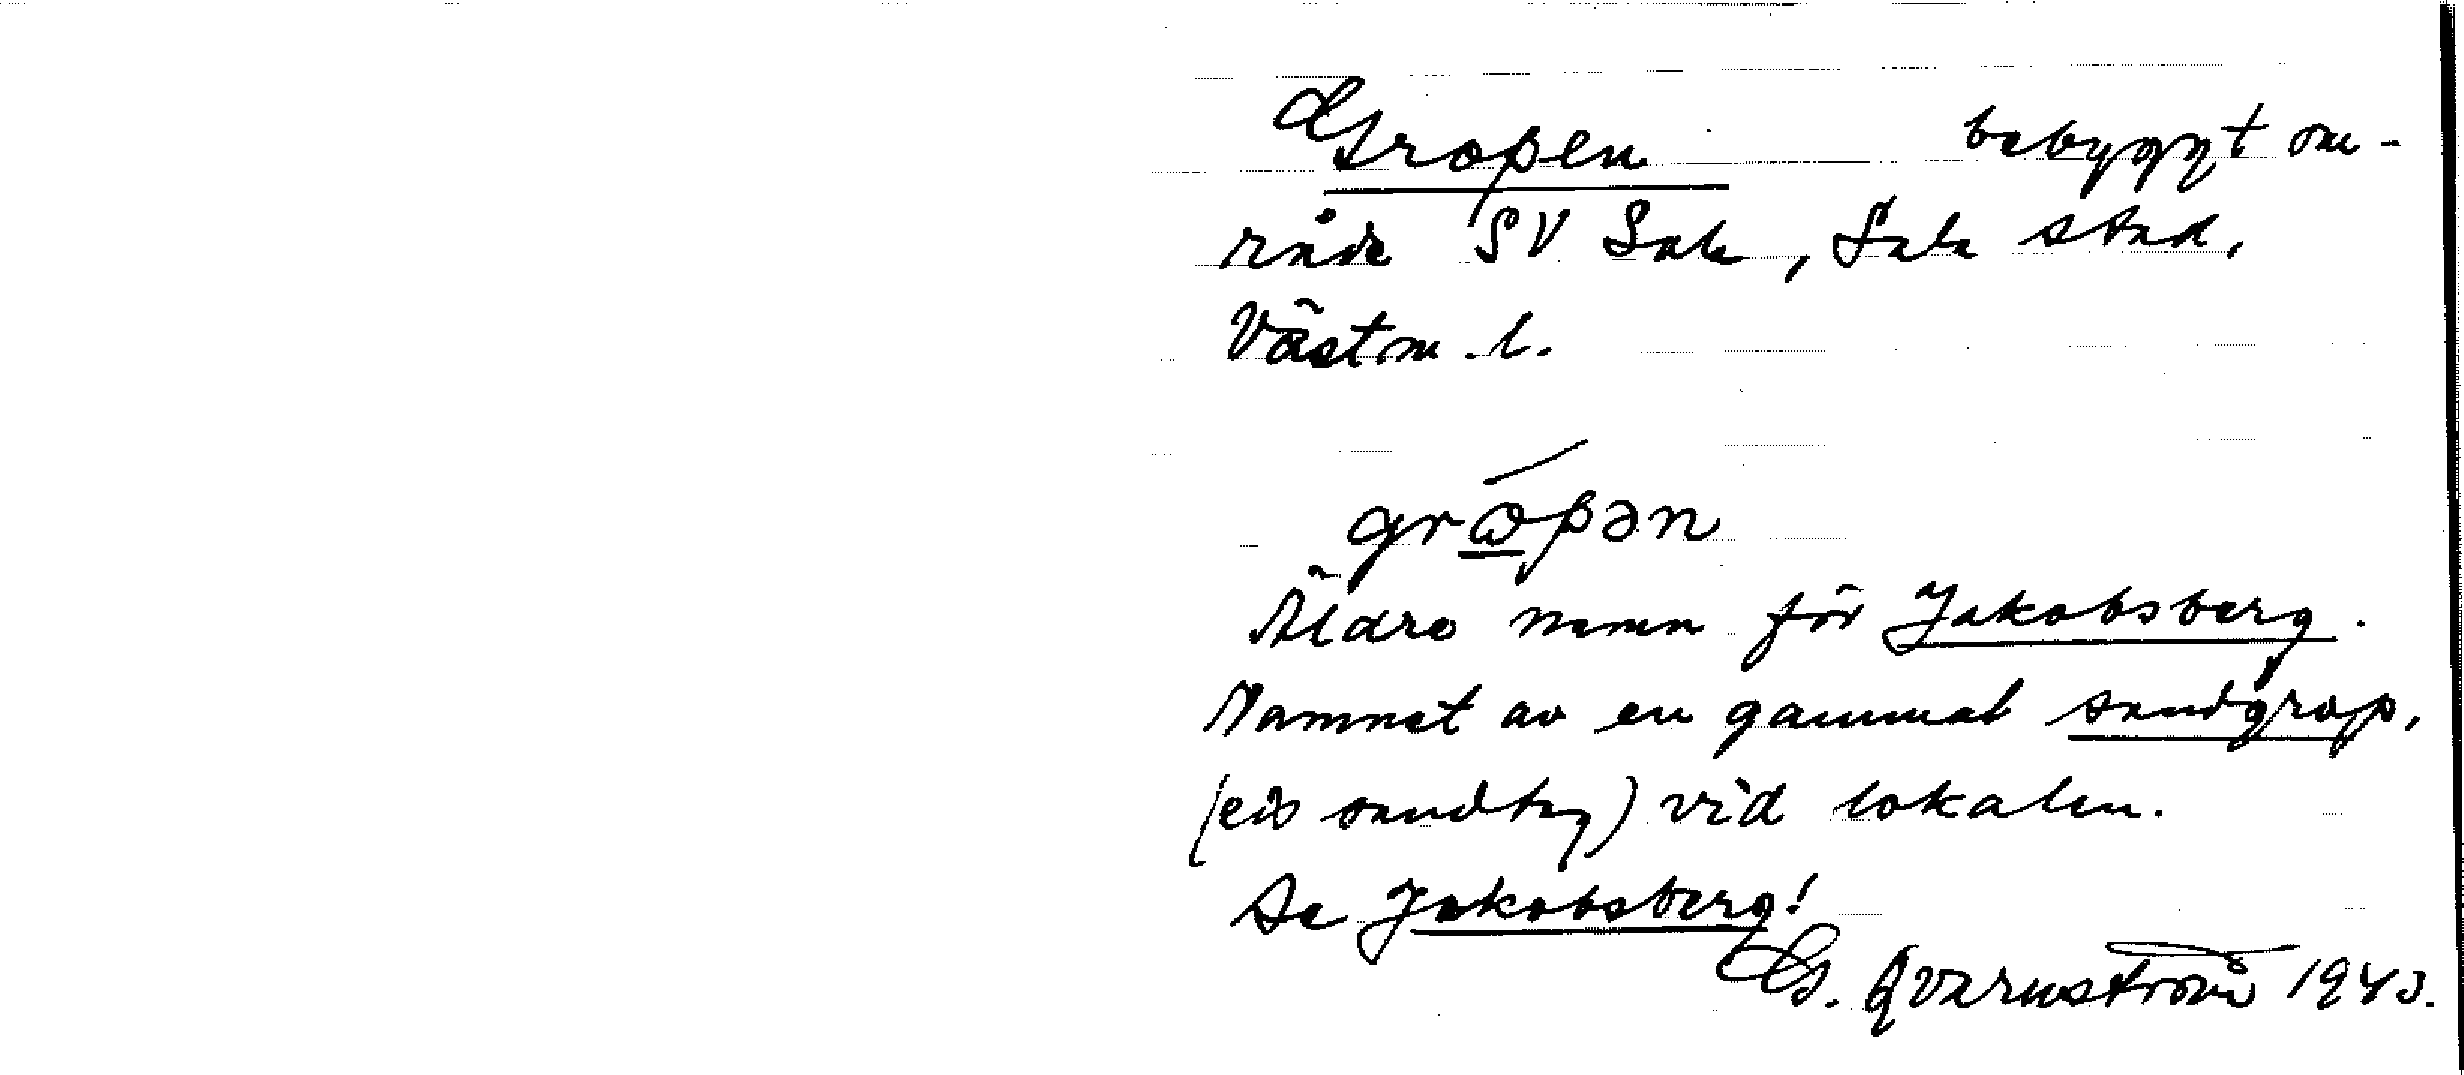 Gropen bebyggt om-
råde SV Sala, Sala stad,
Västm. l.
grώ̱pən
Äldre namn för Jakobsberg.
Namnet av en gammal sandgrop,
sandtag) vid lokalen.
Se Jakobsberg!
G. Qvarnström 1943.